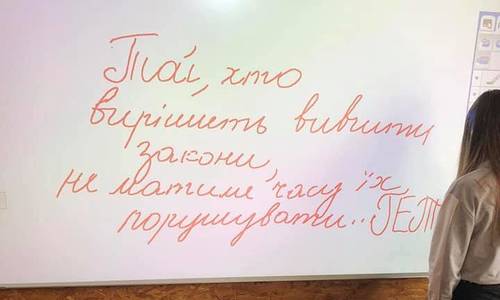 Той, хто
вирішить вивчити
закони,
не матиме часу їх
порушувати.. ГЕТ